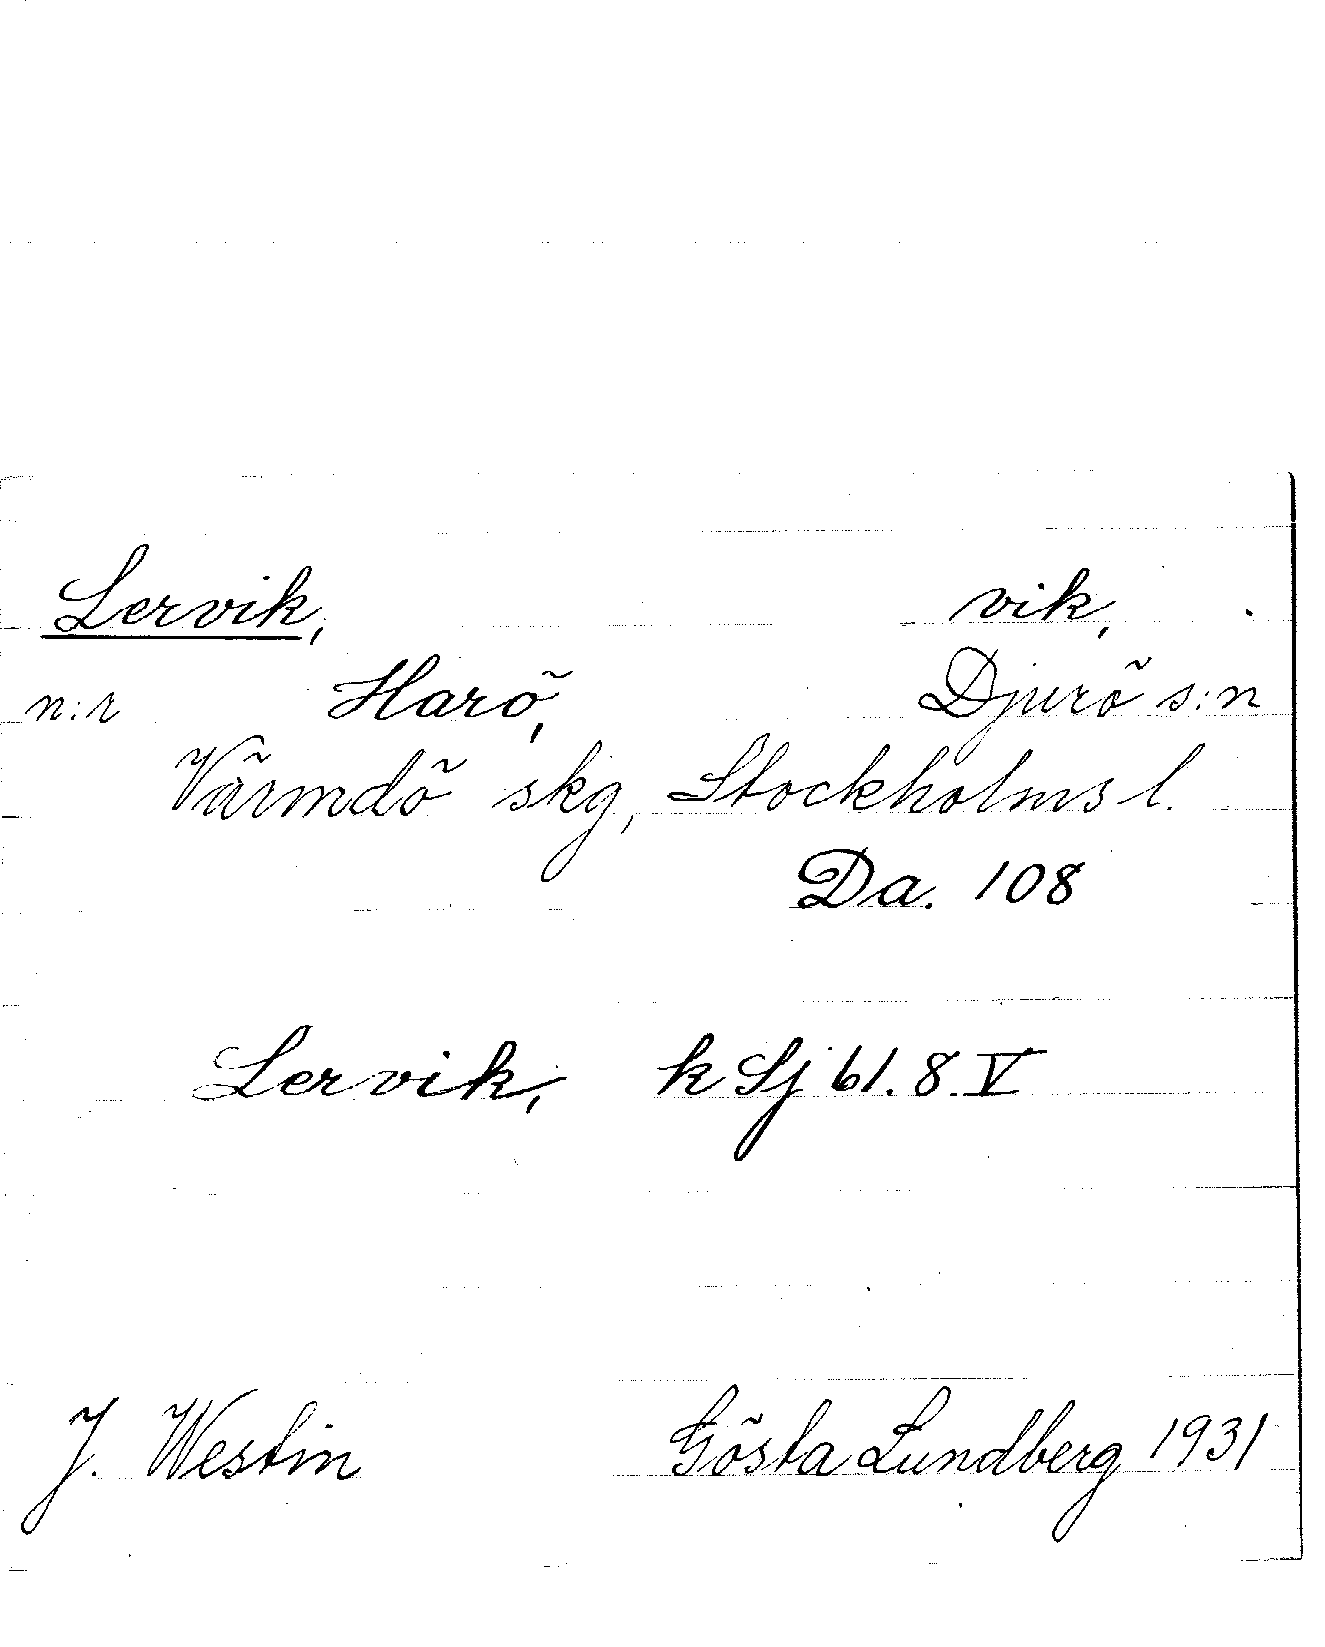 Lervik, vik,
n:r Harö, Djurö s:n
Värmdö skg, Stockholms l.
Da. 108
Lervik, k Sj 61.8.V
J. Westin Gösta Lundberg 1931